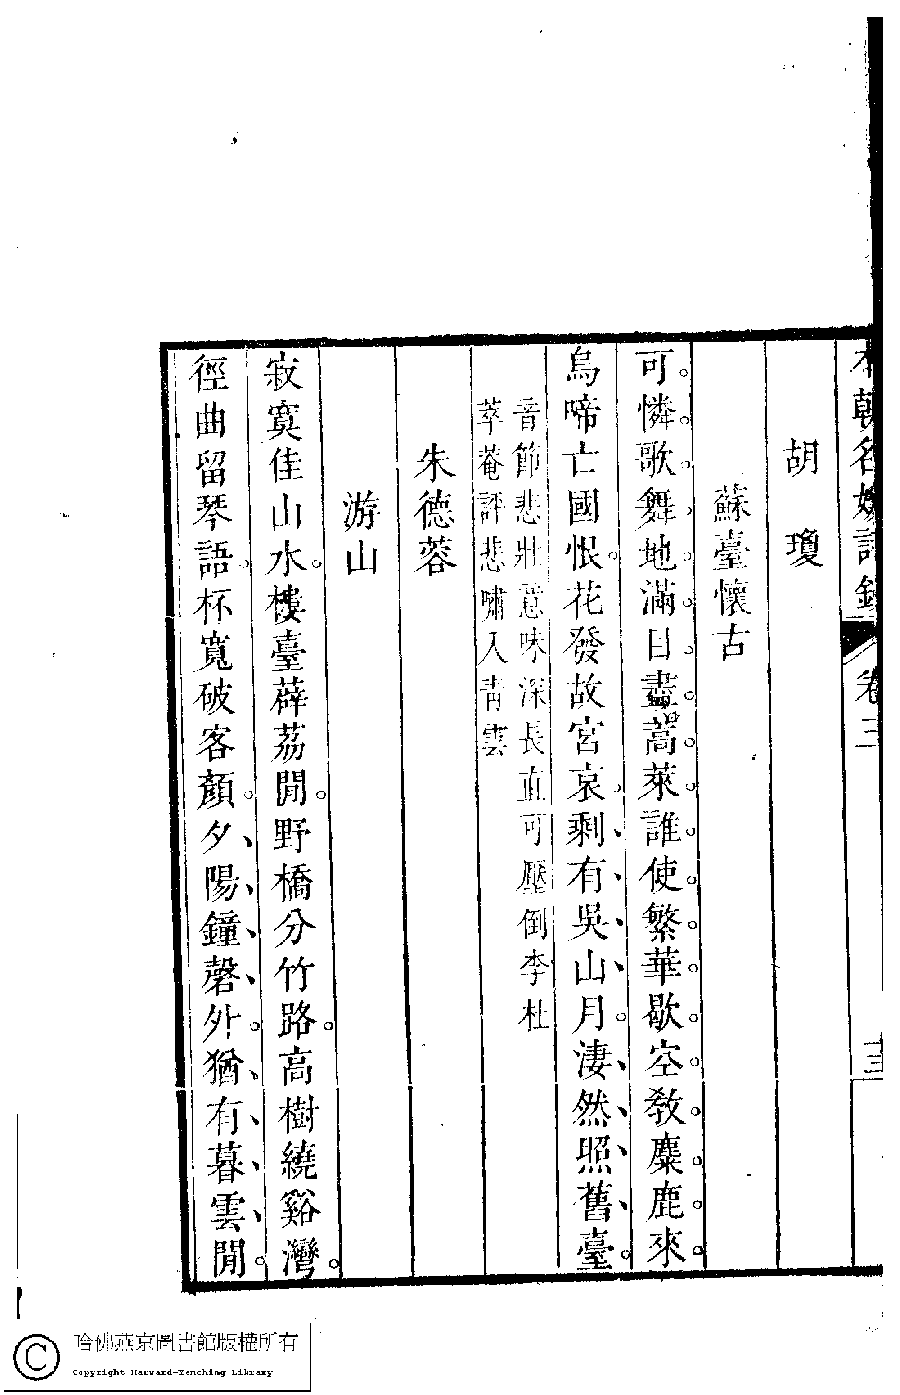 本朝名媛詩鈔 卷三 十三
胡瓊
蘇臺懷古
可憐歌舞地滿目盡蒿萊誰使繁華歇空教麋鹿來
烏啼亡國恨花發故宮哀剩有吳山月淒然照舊臺
音節悲壯意味深長直可壓倒李杜
萃菴評悲嘯入青雲
朱德蓉
游山
寂寞佳山水樓臺薜荔閒野橋分竹路高樹繞谿灣
徑曲留琴語杯寬破客顏夕陽鐘磬外猶有暮雲閒
哈佛燕京圖書館版權所有
Copyright Harvard-Yenching Library